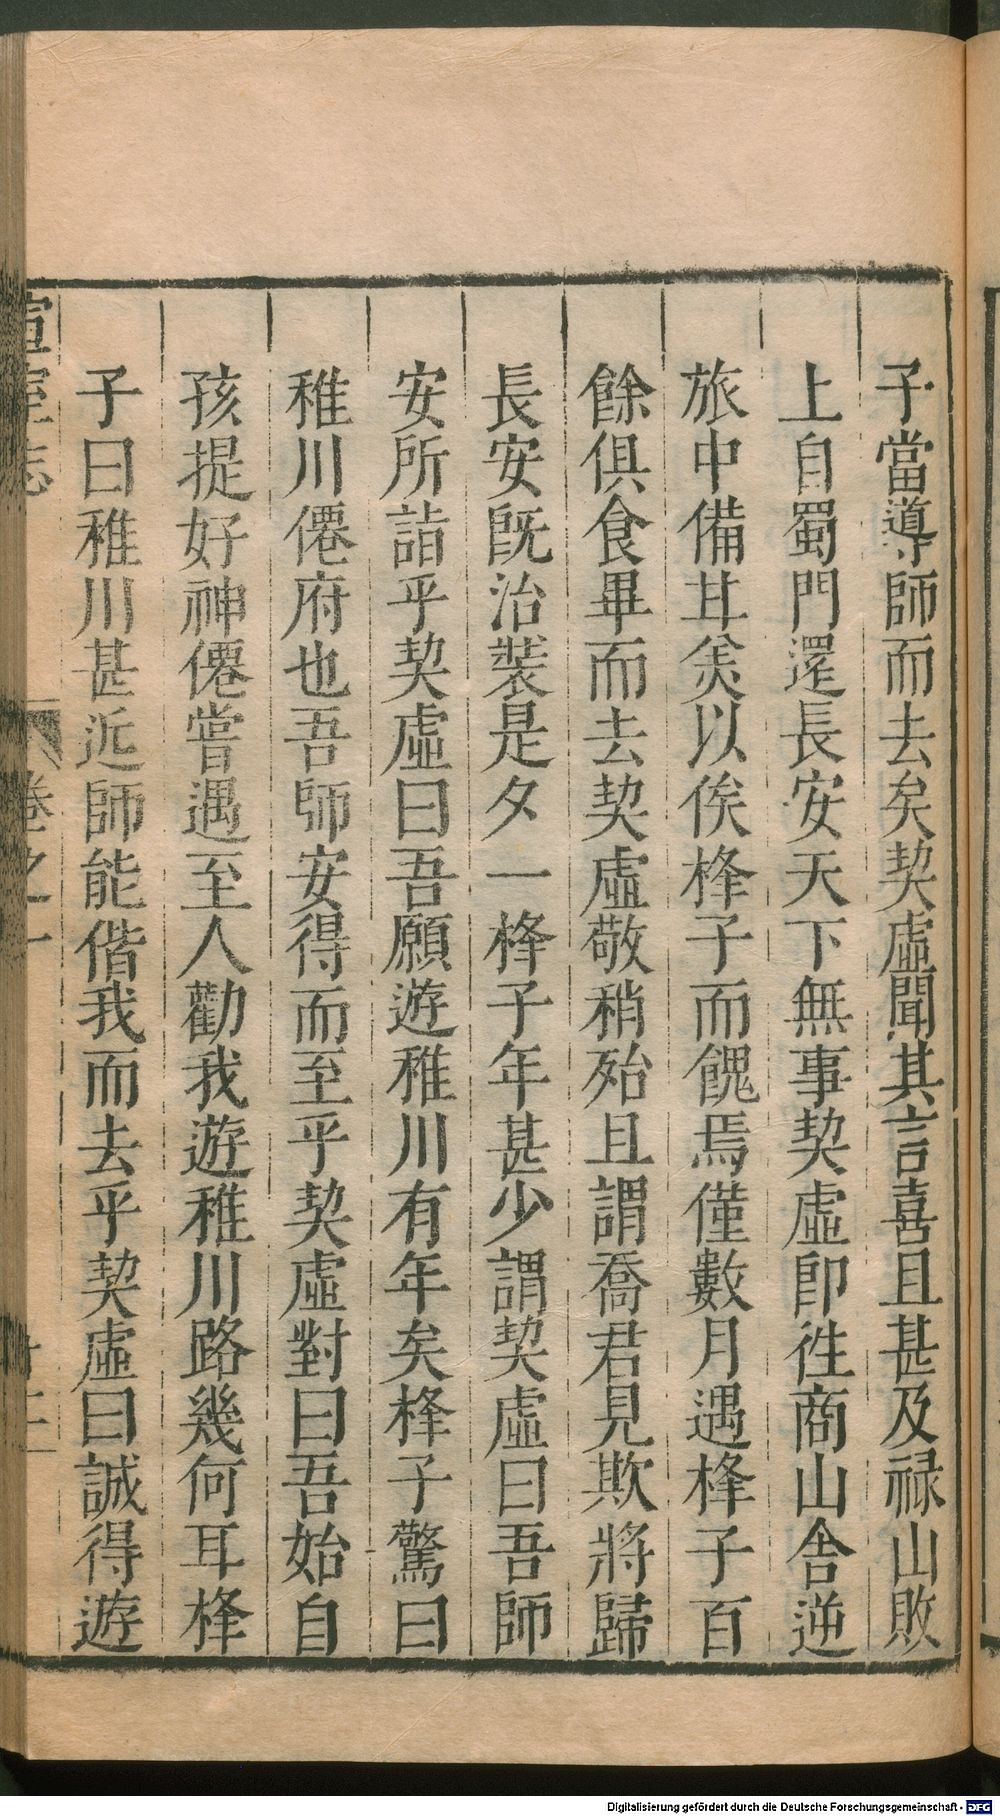 子當導師而去矣契虛聞其言喜且甚及禄山敗
上自蜀門還長安天下無事契虛即徃商山舎逆
旅中備甘羙以俟捀子而餽焉僅數月遇捀子百
餘俱食畢而去契虛敬稍殆且謂喬君見欺將歸
長安既治裝是夕一捀子年甚少謂契虛曰吾師
安所詣乎契虛曰吾願遊稚川有年矣捀子驚曰
稚川僊府也吾師安得而至乎契虛對曰吾始自
孩提好神僊嘗遇至人勸我遊稚川路幾何耳捀
子曰稚川甚近師能偕我而去乎契虛曰誠得遊
宣室志 卷之一
Digitalisierung gefördert durch die Deutsche Forschungsgemeinschaft - DFG